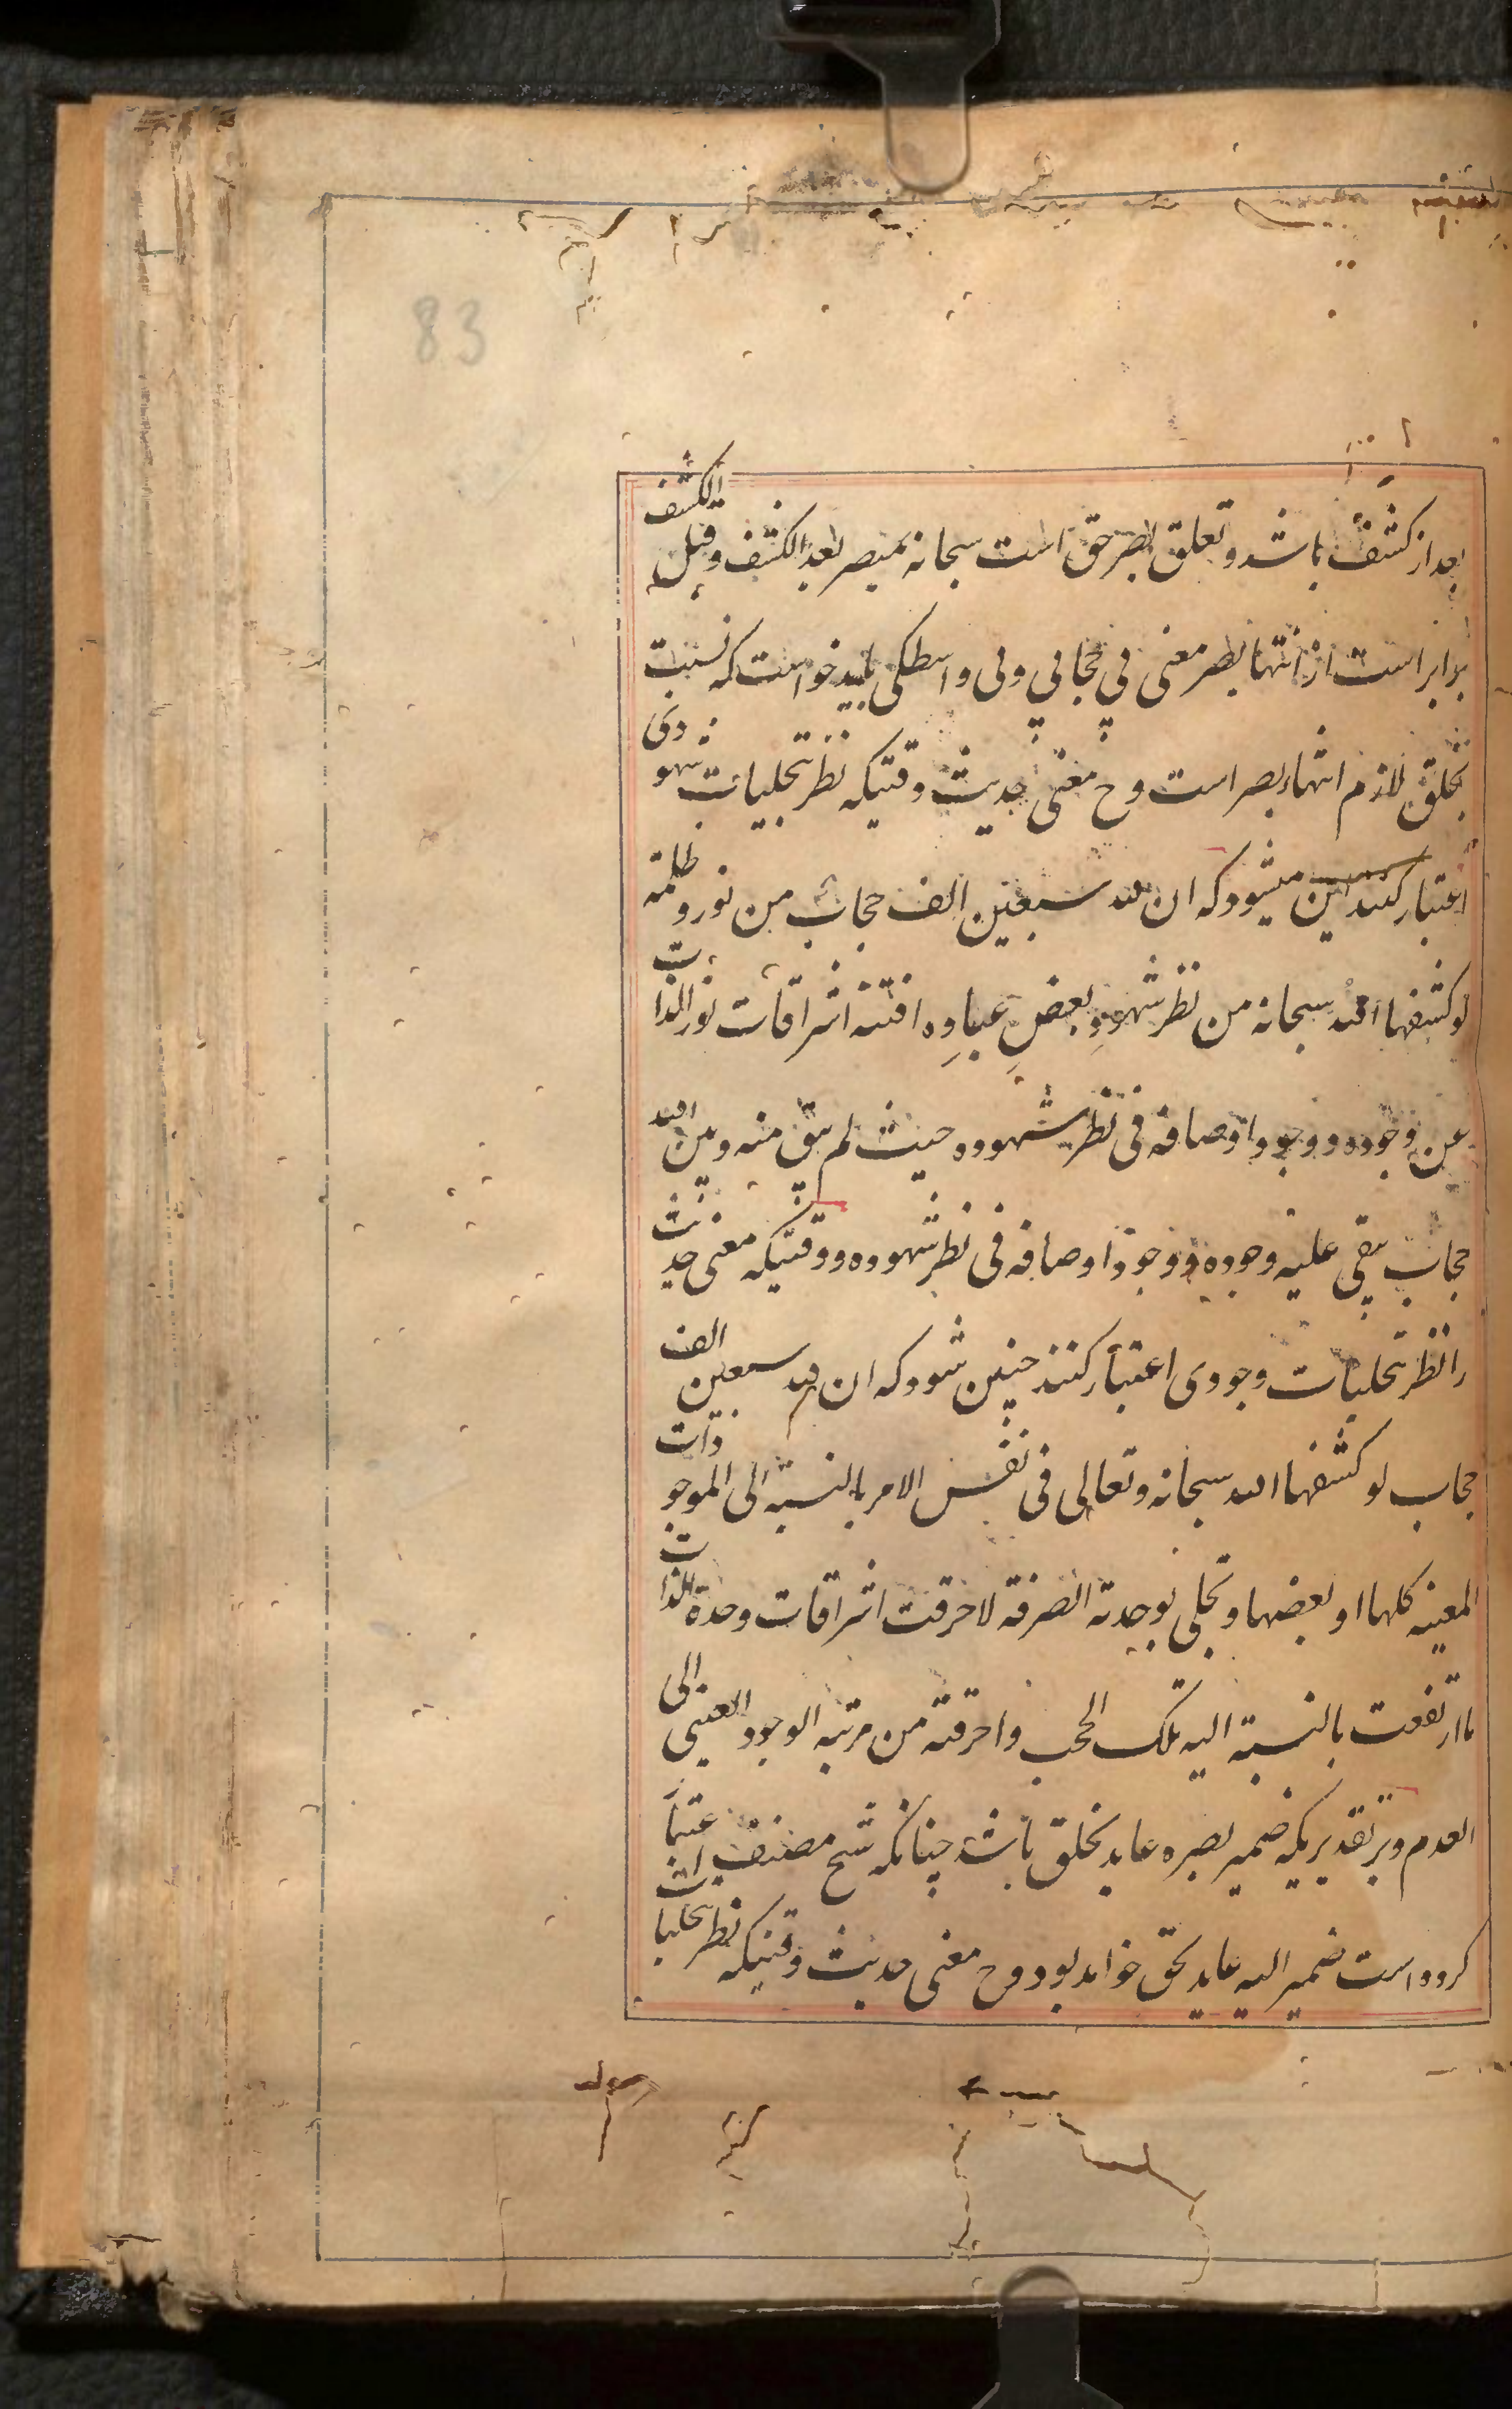 83
بعد از کشف باشد و تعلق بصر حق است سبحانه بمبصر بعد الکشف و قبل الکشف
برابر است از انتهاء بصر معنی بی حجابی و بی واسطگی باید خواست که نسبت
بخلق لازم انتهاء بصر است و ح معنی حدیث وقتیکه نظر بتجلیات شهودی
اعتبار کنند این میشود که ان لله سبعین الف حجاب من نور و ظلمة
لو کشفها الله سبحانه من نظر شهود بعض عباده افتته اشراقات نور الذات
عن وجوده و وجود اوصافه فی نظر شهوده حیث لم یبق منه و بین الله
حجاب یبقی علیه وجوده و وجود اوصافه فی نظر شهوده و وقتیکه معنی حدیث
را نظر بتجلیات وجودی اعتبار کنند چنین شود که ان لله سبعین الف
حجاب لو کشفها الله سبحانه و تعالی فی نفس الامر بالنسبة الی الموجودات
المعینه کلها او بعضها و تجلی بوحدته الصرفة لاحرقت اشراقات وحدة الذات
ما ارتفعت بالنسبة الیه تلک الحجب و احرقته من مرتبه الوجود العینی الی
العدم و بر تقدیریکه ضمیر بصره عاید بخلق باشد چنانکه شیخ مصنف اعتبار
کرده است ضمیر الیه عاید بحق خواهد بود و ح معنی حدیث وقتیکه نظر بتجلیات